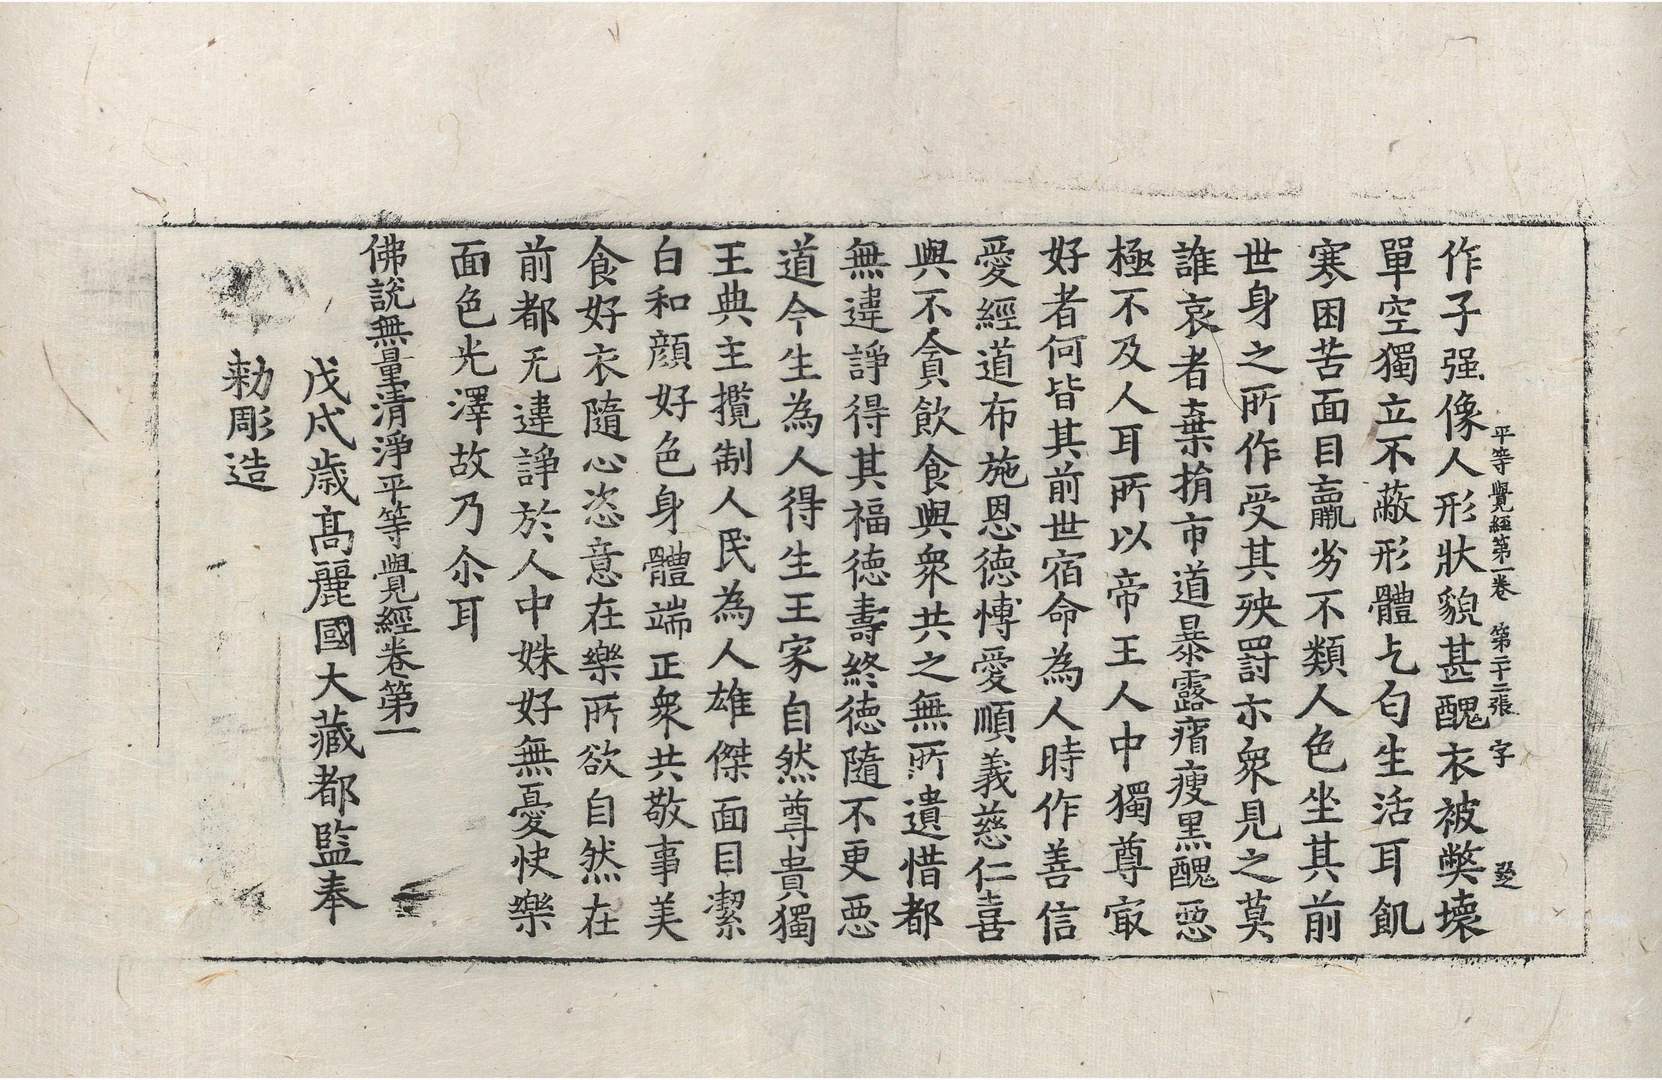 平等覺經第一卷 第二十二張 字
作子强像人形狀貌甚醜衣被弊壞
單空獨立不蔽形體乞匂生活耳飢
寒困苦面目羸劣不類人色坐其前
世身之所作受其殃罸亦衆見之莫
誰哀者棄捐市道暴露瘠瘦黑醜惡
極不及人耳所以帝王人中獨尊㝡
好者何皆其前世宿命為人時作善信
愛經道布施恩德愽愛順義慈仁喜
與不貪飲食與衆共之無所遺惜都
無違諍得其福德壽終德隨不更惡
道今生為人得生王家自然尊貴獨
王典主攬制人民為人雄傑面目潔
白和顔好色身體端正衆共敬事美
食好衣隨心恣意在樂所欲自然在
前都无違諍於人中姝好無憂快樂
面色光澤故乃尒耳
佛說無量清淨平等覺經卷第一
戊戌歲髙麗國大藏都監奉
勑彫造